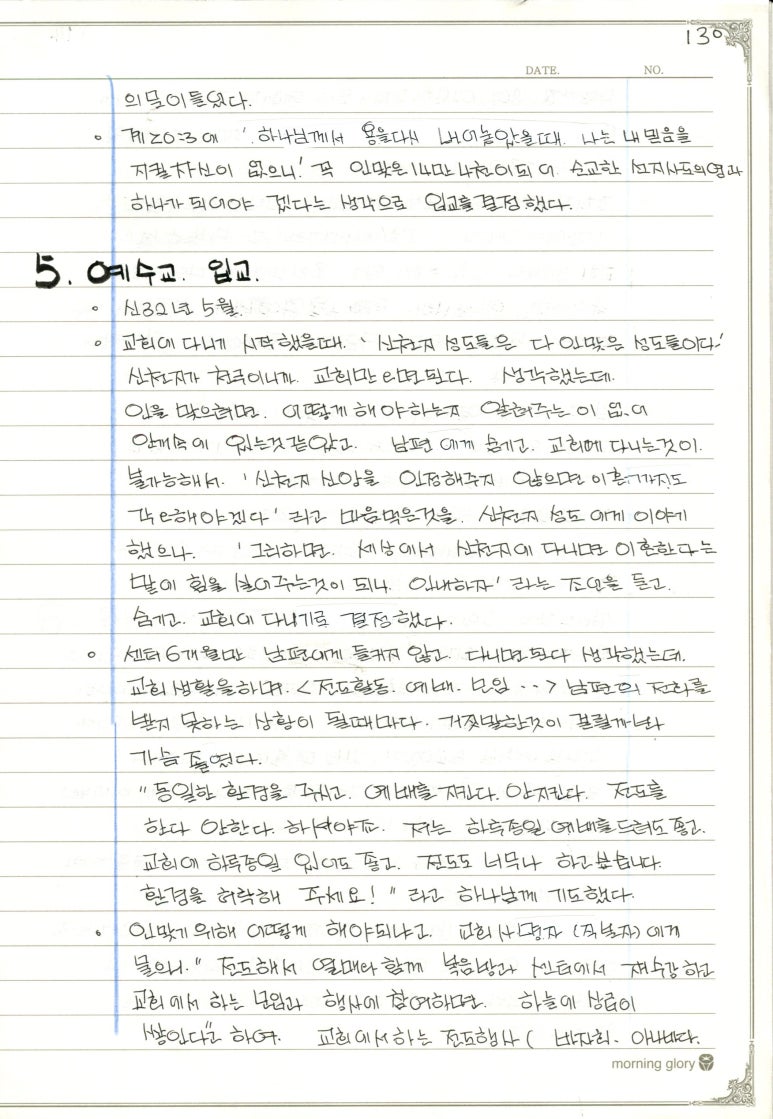 130
DATE. NO.
의문이 들었다.
◦ 계20:3에 '하나님께서 용을 다시 내어놓았을때. 나는 내 믿음을
지킬 자신이 없으니!' 꼭 인맞은 14만 4천이 되어 순교한 선지사도의 영과
하나가 되어야 겠다는 생각으로 입교를 결정했다.
5. 예수교. 입교.
◦ 신32년 5월.
◦ 교회에 다니게 시작했을때. '신천지 성도들은 다 인맞은 성도들이다.'
신천지가 천국이니까. 교회만 오면된다. 생각했는데.
인을 맞으려면. 어떻게 해야하는지 알려주는 이 없어
안개속에 있는것 같았고. 남편에게 숨기고. 교회에 다니는것이.
불가능해서. '신천지 신앙을 인정해주지 않으면 이혼까지도
각오해야겠다' 라고 마음먹은것을. 신천지 성도에게 이야기
했으나. '그리하면. 세상에서 신천지에 다니면 이혼한다는
말에 힘을 실어주는것이 되니. 인내하자' 라는 조언을 듣고.
숨기고. 교회에 다니기로 결정했다.
◦ 센터 6개월만 남편에게 들키지 않고. 다니면 된다 생각했는데.
교회생활을하며. <전도활동. 예배. 모임 ··> 남편의 전화를
받지 못하는 상황이 될때마다. 거짓말한것이 걸릴까봐
가슴 졸였다.
"동일한 환경을 주시고. 예배를 지킨다. 안지킨다. 전도를
한다 안한다. 하셔야죠. 저는 하루종일 예배를 드려도 좋고.
교회에 하루종일 있어도 좋고. 전도도 너무나 하고싶습니다.
환경을 허락해 주세요!" 라고 하나님께 기도했다.
◦ 인맞기 위해 어떻게 해야되냐고. 교회 사명자 (직분자)에게
물으니." 전도해서 열매와 함께 복음방과 센터에서 재수강하고
교회에서 하는 모임과 행사에 참여하면. 하늘에 상급이
쌓인다"고 하여. 교회에서 하는 전도행사 ( 바자회. 아나바다.
morning glory